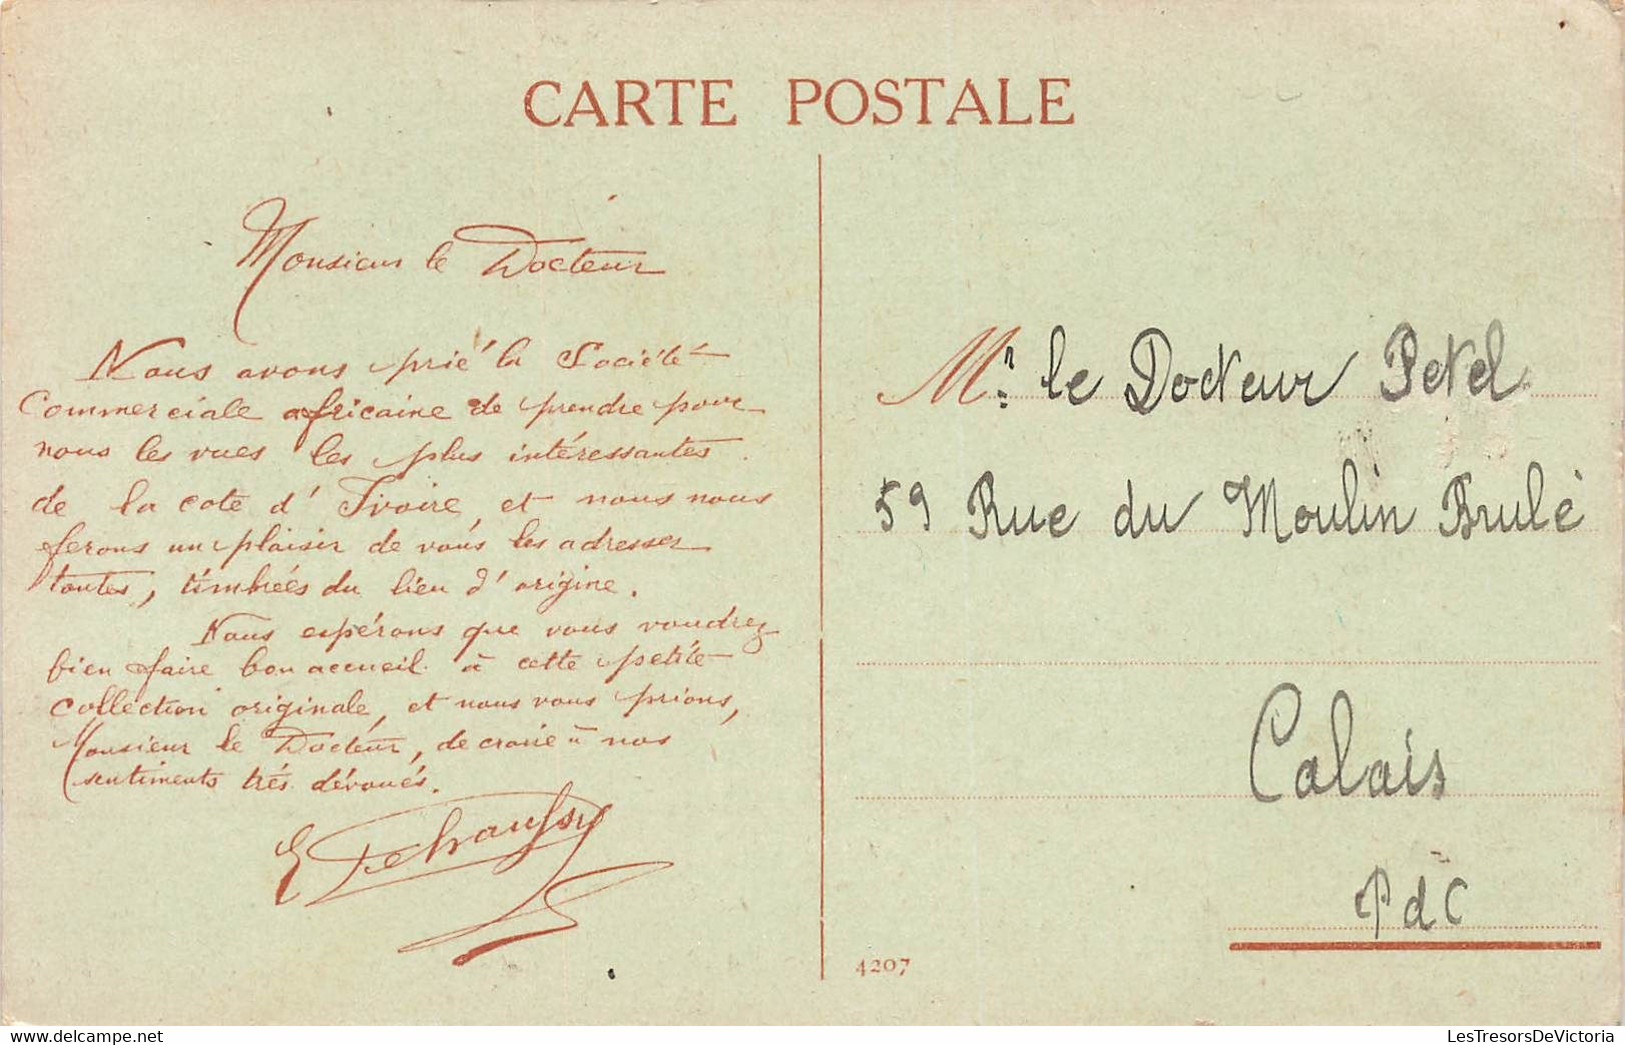 CARTE POSTALE
Monsieur le Docteur
Nous avons prié la Société
Commerciale africaine de prendre pour
nous les vues les plus intéressantes
de la cote d'Ivoire, et nous nous
ferons un plaisir de vous les adresser
toutes, timbrées du lieu d'origine.
Nous espérons que vous voudrez
bien faire bon accueil à cette petite
collection originale, et nous vous prions,
Monsieur le Docteur, de croire à nos
sentiments très dévoués.
Mr. le Docteur Petel
59 Rue du Moulin Brulé
Calais
PdC
4207
delcampe.net
LesTresorsDeVictoria